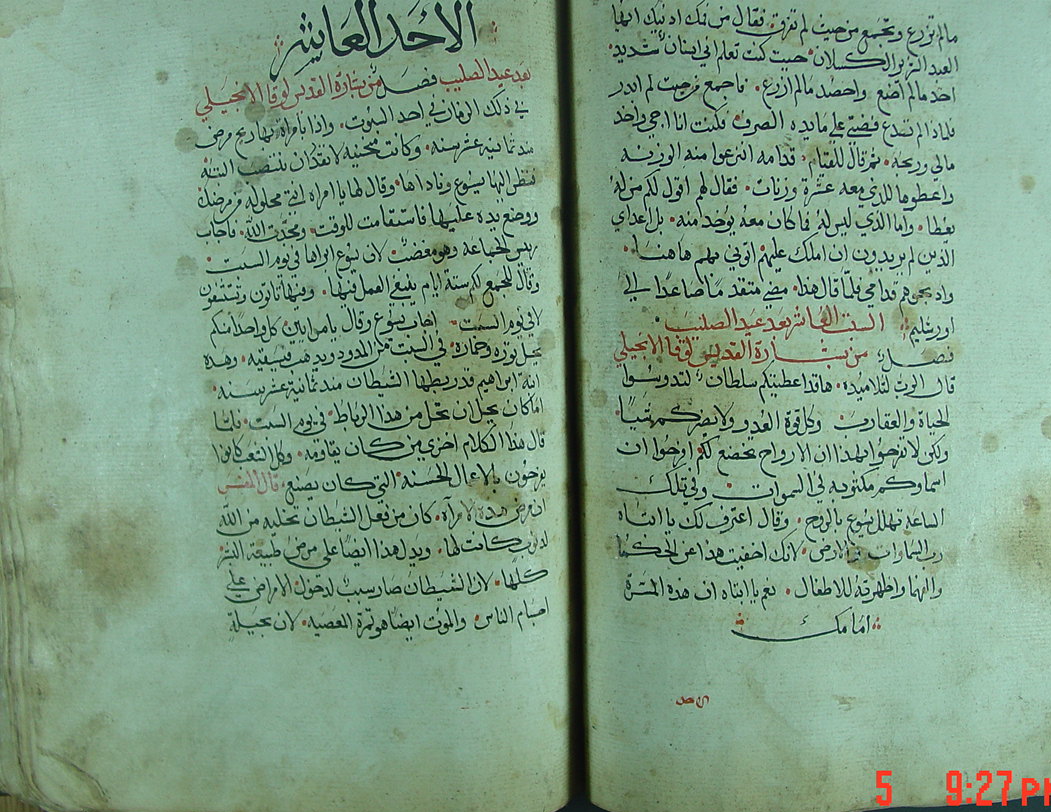 مالم تزرع وتجمع من حيث لم تفرق فقال من فمك ادينك ايها
العبد الشرير الكسلان حيث كنت تعلم اني انسان شديد
اخد مالم اضع واحصد مالم ازرع فاجمع من حيث لم ابدر
فلماذا لم تستدع فضتي على مايده الصرف فكنت انا اجي واخد
مالي وربحه ثم قال للقيام قدامه انزعوا منه الوزنه
واعطوها للدي معه عشرة وزنات فقال لهم اقول لكم من له
يعطا واما الذي ليس له فما كان معه يوخد منه بل اعداي
الدين لم يريدون ان املك عليهم اتوني بهم هاهنا
وادبحوهم قدامي فلما قال هذا مضي متقدماً صاعداً الي
اورشليم السبت العاشر بعد عيد الصليب
فصل من بشارة القديس لوقا الانجيلي
قال الرب لتلاميده هاقد اعطيتكم سلطان لتدوسوا
الحياة والعقارب وكل قوة العدو ولا يضركم شياً
ولكن لا تفرحوا بهدا ان الارواح تخضع لكم افرحوا ان
اسماوكم مكتوبه في السموات وفي تلك
الساعه تهلل يسوع بالروح وقال اعترف لك يا ابتاه
رب السماوات والارض لانك اخفيت هدا عن الحكما
والفهما واظهرته للاطفال نعم يا ابتاه ان هده المسرة
امامك
الاحد العاشر
بعد عيد الصليب فصل من بشارة القديس لوقا الانجيلي
في دلك الزمان في احد السبوت وادا بامراه بها ريح مرض
مند ثمانيه عشر سنه وكانت منحنيه لا تقدر ان تنتصب البتة
فنظر اليها يسوع وناداها وقال لها يا امراه انتي محلوله من مرضك
ووضع يده عليها فاستقامت للوقت ومجدت الله فاجاب
رييس الجماعه وهو مغضب لان يسوع ابراها في يوم السبت
وقال للجمع لكم ستة ايام ينبغي العمل فيها وفيها تاتون وتستشفون
لا في يوم السبت اجاب يسوع وقال يا مرايين كل واحد منكم
يحل توره وحماره في السبت من المدود ويدهب فيسقيه وهده
ابنة ابراهيم قد ربطها الشيطان مند ثمانية عشر سنه
اما كان يحل ان تحل من هدا الرباط في يوم السبت فلما
قال هدا الكلام اخزي من كان يقاومه وكل الشعب كانوا
يفرحون بالاعمال الحسنه التي كان يصنع قال المفسر
ان مرض هده الامراه كان من فعل الشيطان بتخليه من الله
لدنوب كانت لها ويدل هدا ايضا على مرض طبيعة البشر
كلها لان الشيطان صار سبب لدخول الامراض علي
اجسام الناس والموت ايضا هو تمرة المعصيه لان بحيلة
5 9:27 PM